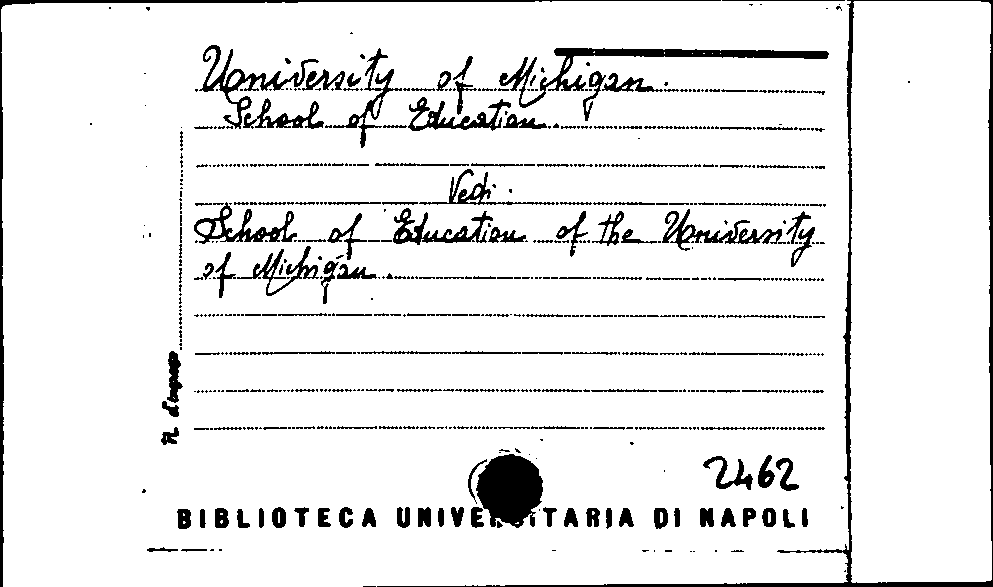 University of Michigan.
School of Education.
Vedi:
School of Education of the University
of Michigan.
N. d'ingresso
2462
BIBLIOTECA UNIVERSITARIA DI NAPOLI